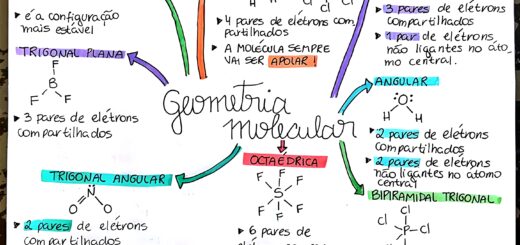 ▸ é a configuração
mais estável
TRIGONAL PLANA
F
B
F F
▸ 3 pares de elétrons
compartilhados
Cl Cl
▸ 4 pares de elétrons com
partilhados
▸ A MOLÉCULA SEMPRE
VAI SER APOLAR!
▸ 3 pares de elétrons
compartilhados
▸ 1 par de elétrons
não ligantes no áto
mo central.
Geometria
molecular
ANGULAR
O
H H
▸ 2 pares de elétrons
compartilhados
▸ 2 pares de elétrons
não ligantes no átomo
central
TRIGONAL ANGULAR
N
O O
▸ 2 pares de elétrons
compartilhados
OCTAÉDRICA
F
F F
S
F F
F
▸ 6 pares de
BIPIRAMIDAL TRIGONAL
Cl
Cl
P-Cl
Cl